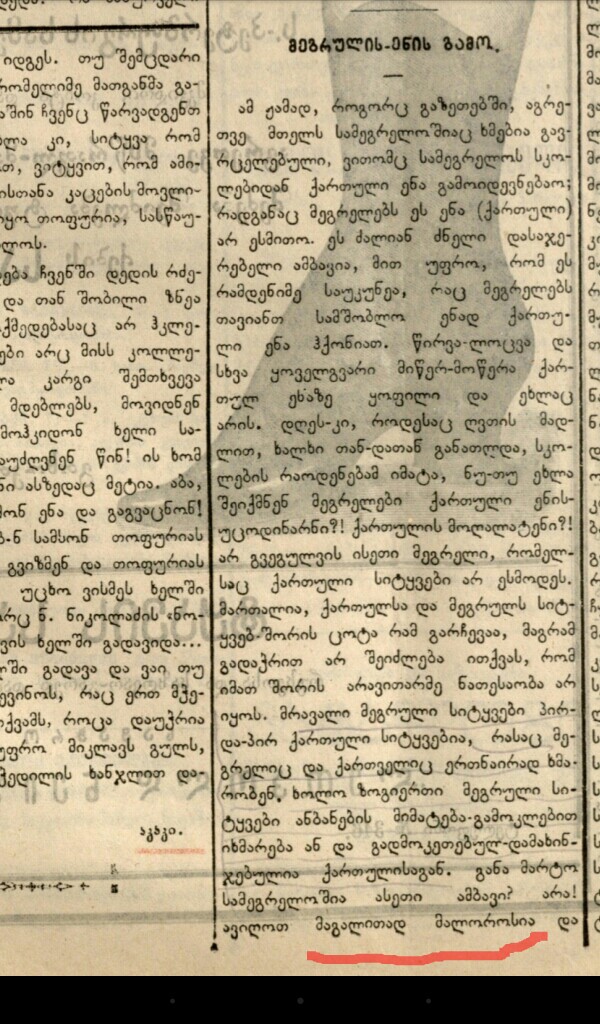 იდგეს. თუ შემცდარი
რომელიმე მათგანმა გა-
შინ ჩვენც წარვადგენთ
ლა კი, სიტყვა რომ
თ, ვიტყვით, რომ ამი-
ისთანა კაცების მოვლი-
იყო თოფურია, სასწაუ-
ლოს.
ება ჩვენში დედის რძე-
და თან შობილი ზნეა
ქმედებასაც არ ჰკლე-
ები არც მისს კოლლე-
ლა კარგი შემთხვევა
მდებლებს, მოვიდნენ
მოჰკიდონ ხელი სა-
აუძღვნენ წინ! ის ხომ
ნი ასზედაც მეტია. აბა,
ონ ენა და გაგვაცნონ!
ბ-ნ სამსონ თოფურიას
გვიზმენ და თოფურიას
უცხო ვისმეს ხელში
არც ნ. ნიკოლაძის „ნო-
ვის ხელში გადავიდა...
ლში გადავა და ვაი თუ
ევინოს, რაც ერთ მჭე-
ქვამს, როცა დაუჭრია
უფრო მიკლავს გულს,
ჭედილის ხანჯლით და-
აკაკი.
მეგრულის-ენის გამო.
ამ ჟამად, როგორც გაზეთებში, აგრე-
თვე მთელს სამეგრელოშიაც ხმებია გავ-
რცელებული, ვითომც სამეგრელოს სკო-
ლებიდან ქართული ენა გამოიდევნებაო;
რადგანაც მეგრელებს ეს ენა (ქართული)
არ ესმითო. ეს ძალიან ძნელი დასაჯე-
რებელი ამბავია, მით უფრო, რომ ეს
რამდენიმე საუკუნეა, რაც მეგრელებს
თავიანთ სამშობლო ენად ქართუ-
ლი ენა ჰქონიათ. წირვა-ლოცვა და
სხვა ყოველგვარი მიწერ-მოწერა ქარ-
თულ ენაზე ყოფილი და ეხლაც
არის. დღეს-კი, როდესაც ღვთის მად-
ლით, ხალხი თან-დათან განათლდა, სკო-
ლების რაოდენებამ იმატა, ნუ-თუ ეხლა
შეიქმნენ მეგრელები ქართული ენის-
უცოდინარნი?! ქართულის მოღალატენი?!
არ გვეგულვის ისეთი მეგრელი, რომელ-
საც ქართული სიტყვები არ ესმოდეს.
მართალია, ქართულსა და მეგრულს სიტ-
ყვებ-შორის ცოტა რამ გარჩევაა, მაგრამ
გადაჭრით არ შეიძლება ითქვას, რომ
იმათ შორის არავითარმე ნათესაობა არ
იყოს. მრავალი მეგრული სიტყვები პირ-
და-პირ ქართული სიტყვებია, რასაც მე-
გრელიც და ქართველიც ერთნაირად ხმა-
რობენ, ხოლო ზოგიერთი მეგრული სი-
ტყვები ანბანების მიმატება-გამოკლებით
იხმარება ან და გადმოკეთებულ-დამახინ-
ჯებულია ქართულისაგან. განა მარტო
სამეგრელოშია ასეთი ამბავი? არა!
ავიღოთ მაგალითად მალოროსია და